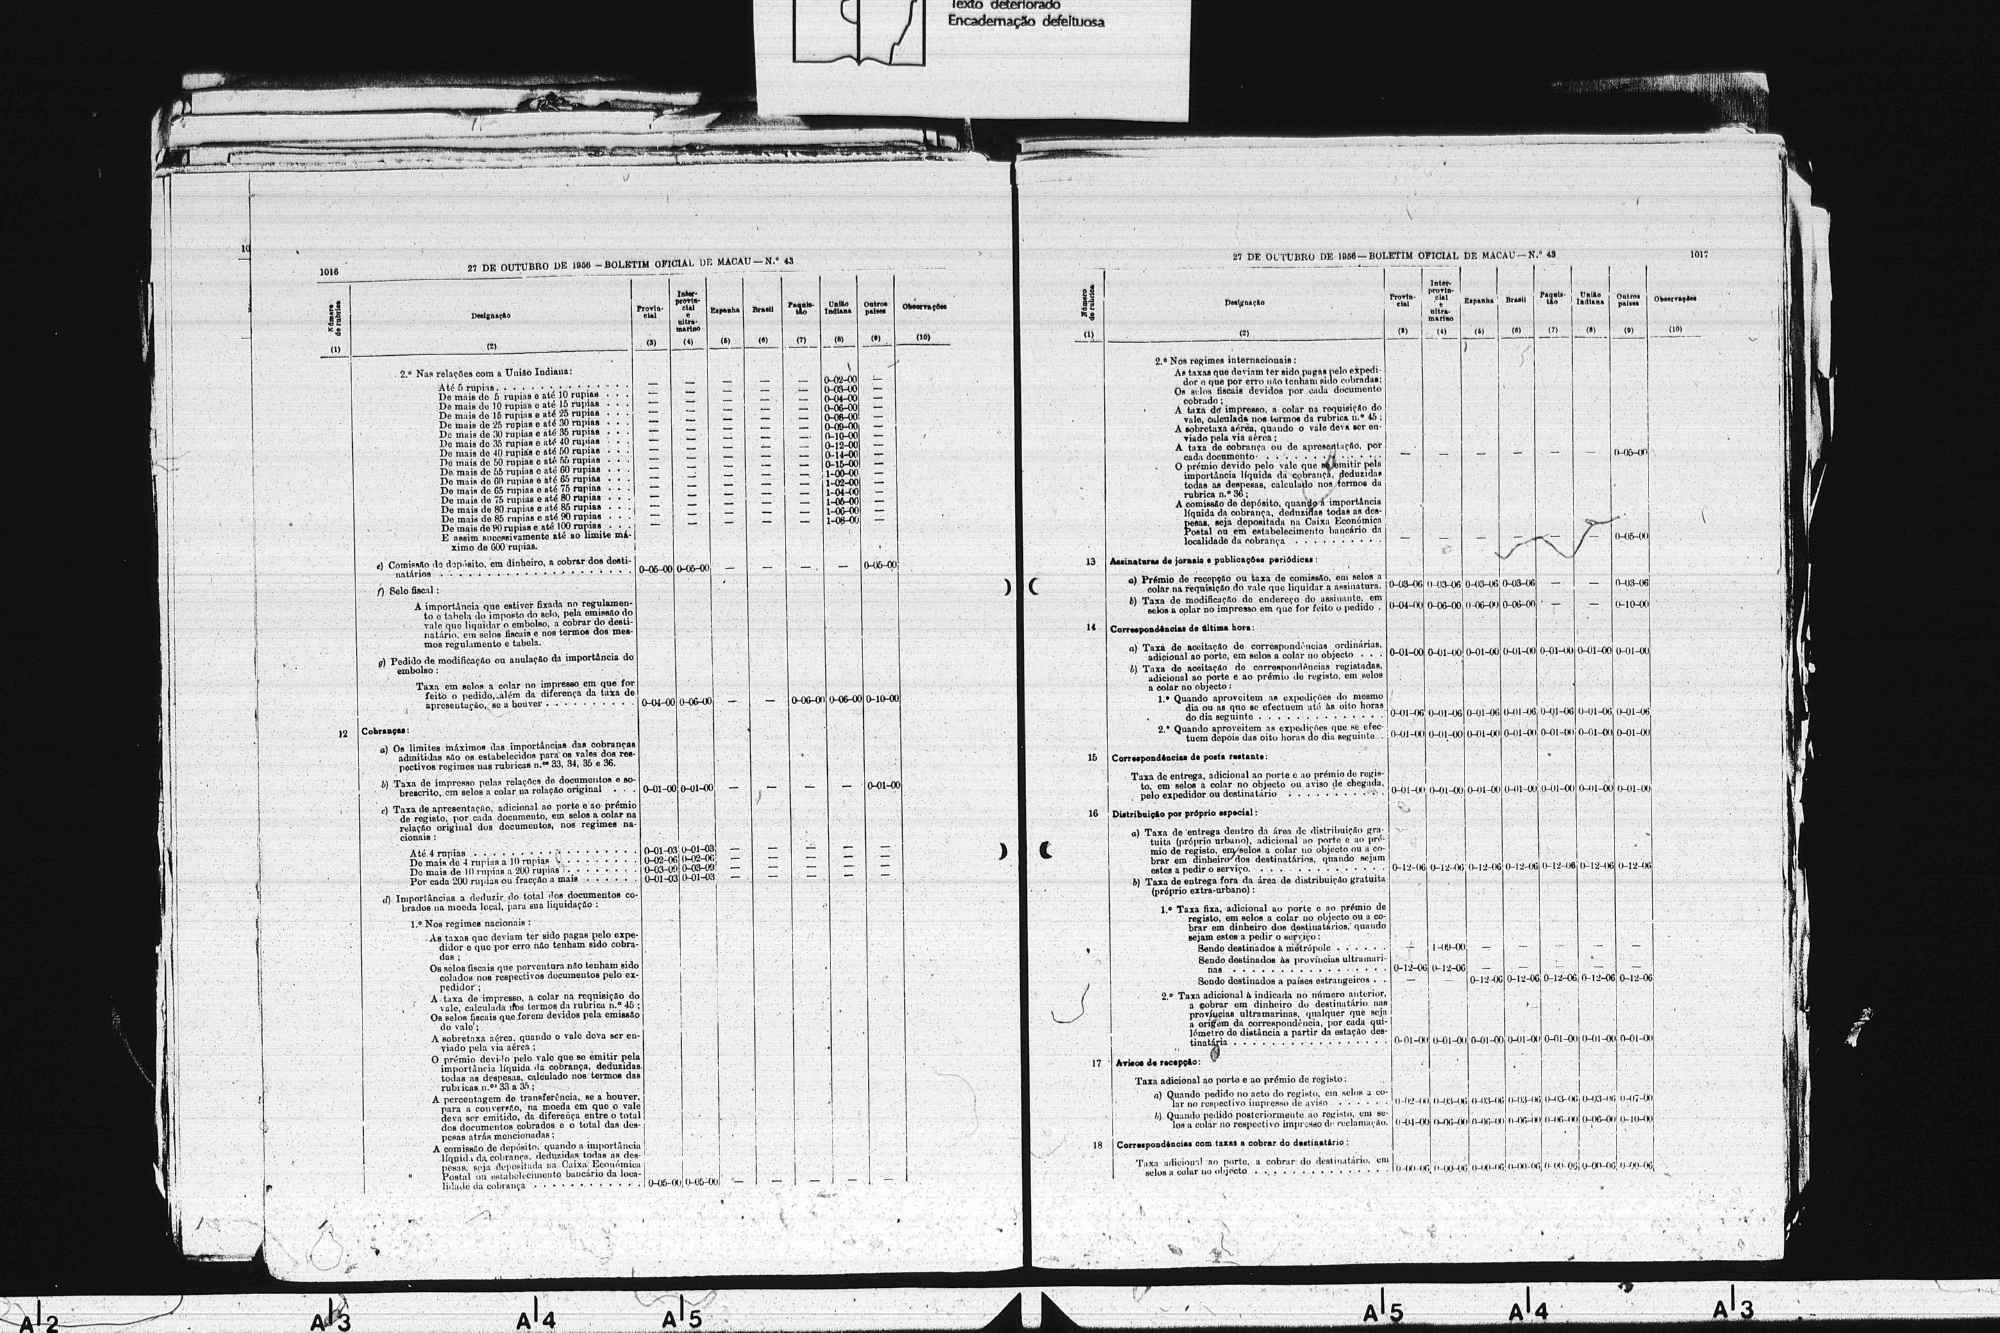 Texto deteriorado
Encadernação defeituosa
10
1016
27 DE OUTUBRO DE 1956 — BOLETIM OFICIAL DE MACAU — N.º 43
Número de rubrica (1)
Designação (2)
Provincial (3)
Interprovincial e ultramarino (4)
Espanha (5)
Brasil (6)
Paquistão (7)
União Indiana (8)
Outros países (9)
Observações (10)
2.º Nas relações com a União Indiana:
Até 5 rupias . . . — — — — — 0-02-00 —
De mais de 5 rupias e até 10 rupias . . . — — — — — 0-03-00 —
De mais de 10 rupias e até 15 rupias . . . — — — — — 0-04-00 —
De mais de 15 rupias e até 25 rupias . . . — — — — — 0-06-00 —
De mais de 25 rupias e até 30 rupias . . . — — — — — 0-08-00 —
De mais de 30 rupias e até 35 rupias . . . — — — — — 0-09-00 —
De mais de 35 rupias e até 40 rupias . . . — — — — — 0-10-00 —
De mais de 40 rupias e até 50 rupias . . . — — — — — 0-12-00 —
De mais de 50 rupias e até 55 rupias . . . — — — — — 0-14-00 —
De mais de 55 rupias e até 60 rupias . . . — — — — — 0-15-00 —
De mais de 60 rupias e até 65 rupias . . . — — — — — 1-00-00 —
De mais de 65 rupias e até 75 rupias . . . — — — — — 1-02-00 —
De mais de 75 rupias e até 80 rupias . . . — — — — — 1-04-00 —
De mais de 80 rupias e até 85 rupias . . . — — — — — 1-05-00 —
De mais de 85 rupias e até 90 rupias . . . — — — — — 1-06-00 —
De mais de 90 rupias e até 100 rupias . . . — — — — — 1-08-00 —
E assim sucessivamente até ao limite má-
ximo de 600 rupias.
e) Comissão de depósito, em dinheiro, a cobrar dos desti-
natários . . . 0-05-00 0-05-00 — — — — 0-05-00
f) Selo fiscal:
A importância que estiver fixada no regulamen-
to e tabela do imposto do selo, pela emissão do
vale que liquidar o embolso, a cobrar do desti-
natário, em selos fiscais e nos termos dos mes-
mos regulamento e tabela.
g) Pedido de modificação ou anulação da importância do
embolso:
Taxa em selos a colar no impresso em que for
feito o pedido, além da diferença da taxa de
apresentação, se a houver . . . 0-04-00 0-06-00 — — 0-06-00 0-06-00 0-10-00
12 Cobranças:
a) Os limites máximos das importâncias das cobranças
admitidas são os estabelecidos para os vales dos res-
pectivos regimes nas rubricas n.ºs 33, 34, 35 e 36.
b) Taxa de impresso pelas relações de documentos e so-
brescrito, em selos a colar na relação original . . . 0-01-00 0-01-00 — — — — 0-01-00
c) Taxa de apresentação, adicional ao porte e ao prémio
de registo, por cada documento, em selos a colar na
relação original dos documentos, nos regimes na-
cionais:
Até 4 rupias . . . 0-01-03 0-01-03 — — — — —
De mais de 4 rupias a 10 rupias . . . 0-02-06 0-02-06 — — — — —
De mais de 10 rupias a 200 rupias . . . 0-03-09 0-03-09 — — — — —
Por cada 200 rupias ou fracção a mais . . . 0-01-03 0-01-03 — — — — —
d) Importâncias a deduzir do total dos documentos co-
brados na moeda local, para sua liquidação:
1.º Nos regimes nacionais:
As taxas que deviam ter sido pagas pelo expe-
didor e que por erro não tenham sido cobra-
das;
Os selos fiscais que porventura não tenham sido
colados nos respectivos documentos pelo ex-
pedidor;
A taxa de impresso, a colar na requisição do
vale, calculada nos termos da rubrica n.º 45;
Os selos fiscais que forem devidos pela emissão
do vale;
A sobretaxa aérea, quando o vale deva ser en-
viado pela via aérea;
O prémio devido pelo vale que se emitir pela
importância líquida da cobrança, deduzidas
todas as despesas, calculado nos termos das
rubricas n.ºs 33 a 35;
A percentagem de transferência, se a houver,
para a conversão, na moeda em que o vale
deva ser emitido, da diferença entre o total
dos documentos cobrados e o total das des-
pesas atrás mencionadas;
A comissão de depósito, quando a importância
líquida da cobrança, deduzidas todas as des-
pesas, seja depositada na Caixa Económica
Postal ou estabelecimento bancário da loca-
lidade da cobrança . . . 0-05-00 0-05-00 — — — — —
27 DE OUTUBRO DE 1956 — BOLETIM OFICIAL DE MACAU — N.º 43
1017
Número de rubrica (1)
Designação (2)
Provincial (3)
Interprovincial e ultramarino (4)
Espanha (5)
Brasil (6)
Paquistão (7)
União Indiana (8)
Outros países (9)
Observações (10)
2.º Nos regimes internacionais:
As taxas que deviam ter sido pagas pelo expedi-
dor e que por erro não tenham sido cobradas;
Os selos fiscais devidos por cada documento
cobrado;
A taxa de impresso, a colar na requisição do
vale, calculada nos termos da rubrica n.º 45;
A sobretaxa aérea, quando o vale deva ser en-
viado pela via aérea;
A taxa de cobrança ou de apresentação, por
cada documento . . . — — — — — — 0-05-00
O prémio devido pelo vale que se emitir pela
importância líquida da cobrança, deduzidas
todas as despesas, calculado nos termos da
rubrica n.º 36;
A comissão de depósito, quando a importância
líquida da cobrança, deduzidas todas as des-
pesas, seja depositada na Caixa Económica
Postal ou em estabelecimento bancário da
localidade da cobrança . . . — — — — — — 0-05-00
13 Assinaturas de jornais e publicações periódicas:
a) Prémio de recepção ou taxa de comissão, em selos a
colar na requisição do vale que liquidar a assinatura. 0-03-06 0-03-06 0-03-06 0-03-06 — — 0-03-06
b) Taxa de modificação de endereço do assinante, em
selos a colar no impresso em que for feito o pedido . 0-04-00 0-06-00 0-06-00 0-06-00 — — 0-10-00
14 Correspondências de última hora:
a) Taxa de aceitação de correspondências ordinárias,
adicional ao porte, em selos a colar no objecto . . . 0-01-00 0-01-00 0-01-00 0-01-00 0-01-00 0-01-00 0-01-00
b) Taxa de aceitação de correspondências registadas,
adicional ao porte e ao prémio de registo, em selos
a colar no objecto:
1.º Quando aproveitem as expedições do mesmo
dia ou as que se efectuem até às oito horas
do dia seguinte . . . 0-01-06 0-01-06 0-01-06 0-01-06 0-01-06 0-01-06 0-01-06
2.º Quando aproveitem as expedições que se efec-
tuem depois das oito horas do dia seguinte . . 0-01-00 0-01-00 0-01-00 0-01-00 0-01-00 0-01-00 0-01-00
15 Correspondências de posta restante:
Taxa de entrega, adicional ao porte e ao prémio de regis-
to, em selos a colar no objecto ou aviso de chegada,
pelo expedidor ou destinatário . . . 0-01-00 0-01-00 0-01-00 0-01-00 0-01-00 0-01-00 0-01-00
16 Distribuição por próprio especial:
a) Taxa de entrega dentro da área de distribuição gra-
tuita (próprio urbano), adicional ao porte e ao pré-
mio de registo, em selos a colar no objecto ou a co-
brar em dinheiro dos destinatários, quando sejam
estes a pedir o serviço. . . . 0-12-06 0-12-06 0-12-06 0-12-06 0-12-06 0-12-06 0-12-06
b) Taxa de entrega fora da área de distribuição gratuita
(próprio extra-urbano):
1.º Taxa fixa, adicional ao porte e ao prémio de
registo, em selos a colar no objecto ou a co-
brar em dinheiro dos destinatários, quando
sejam estes a pedir o serviço:
Sendo destinados à metrópole . . . — 1-09-00 — — — — —
Sendo destinados às províncias ultramari-
nas . . . 0-12-06 0-12-06 — — — — —
Sendo destinados a países estrangeiros . . — — 0-12-06 0-12-06 0-12-06 0-12-06 0-12-06
2.º Taxa adicional à indicada no número anterior,
a cobrar em dinheiro do destinatário nas
províncias ultramarinas, qualquer que seja
a origem da correspondência, por cada qui-
lómetro de distância a partir da estação des-
tinatária . . . 0-01-00 0-01-00 0-01-00 0-01-00 0-01-00 0-01-00 0-01-00
17 Avisos de recepção:
Taxa adicional ao porte e ao prémio de registo:
a) Quando pedido no acto do registo, em selos a co-
lar no respectivo impresso de aviso . . . 0-02-00 0-03-06 0-03-06 0-03-06 0-03-06 0-03-06 0-07-00
b) Quando pedido posteriormente ao registo, em se-
los a colar no respectivo impresso de reclamação. 0-04-00 0-06-00 0-06-00 0-06-00 0-06-00 0-06-00 0-10-00
18 Correspondências com taxas a cobrar do destinatário:
Taxa adicional ao porte, a cobrar do destinatário, em
selos a colar no objecto . . . 0-00-06 0-00-06 0-00-06 0-00-06 0-00-06 0-00-06 0-00-06
A 2 A 3 A 4 A 5 A 5 A 4 A 3